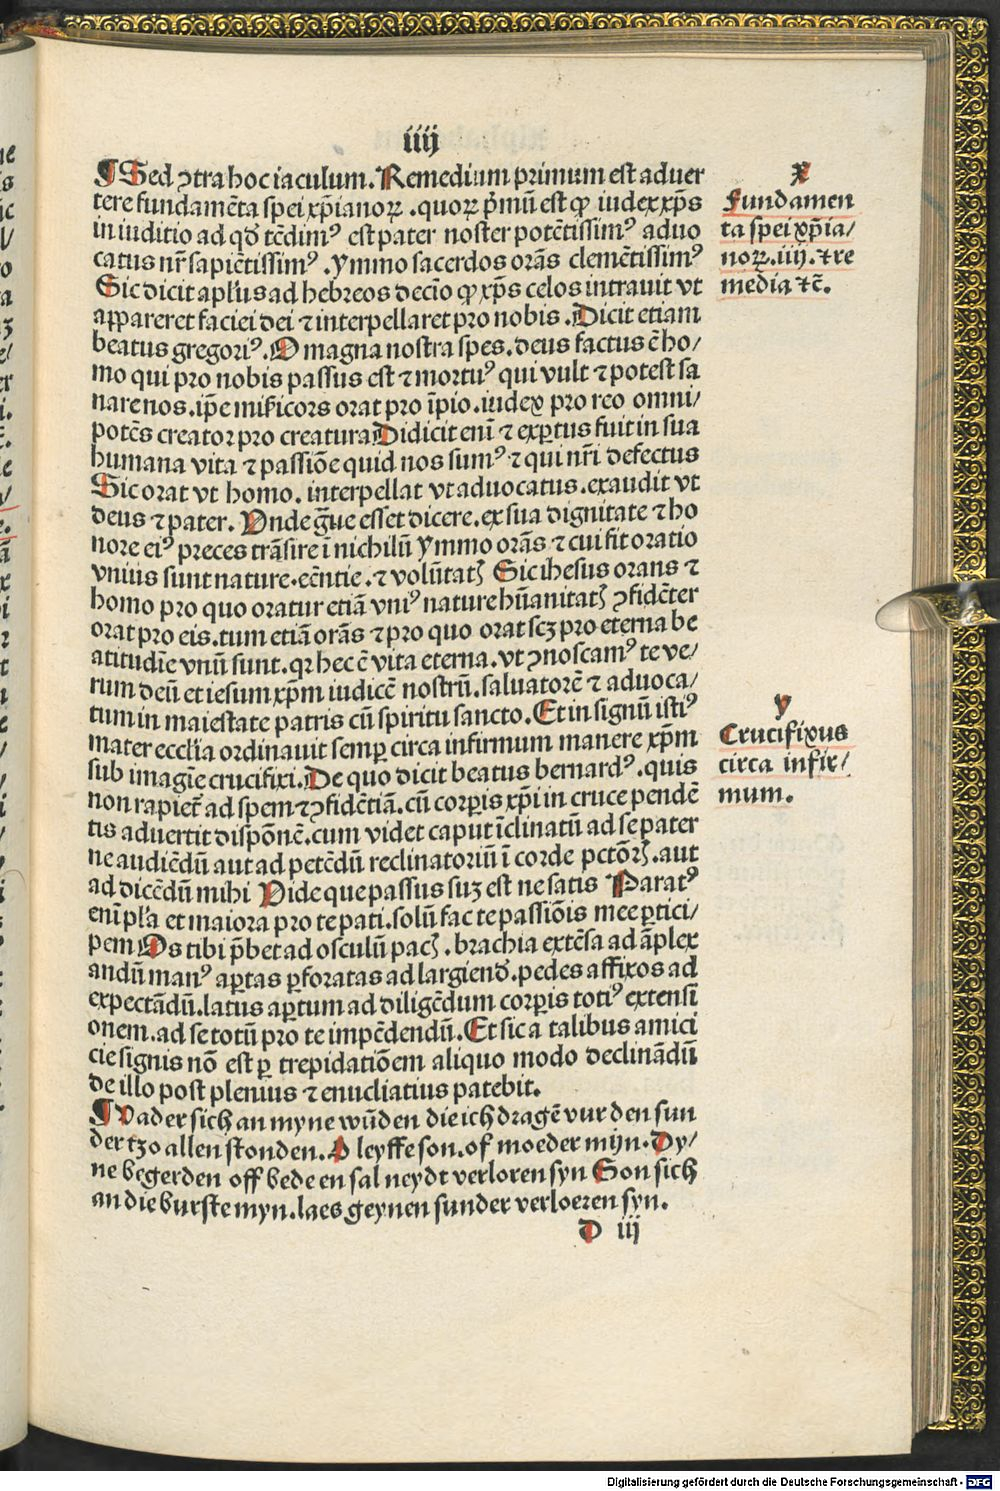 iiij
¶ Sed ꝯtra hoc iaculum. Remedium primum est aduer
tere fundamēta spei xp̄ianoꝝ .quoꝝ p̄mū est ꝙ iudex xp̄s
in iuditio ad qd̄ tēdimꝰ est pater noster potētissimꝰ aduo
catus nr̄ sapiētissimꝰ .ymmo sacerdos orās clemētissimꝰ
Sic dicit apl̄us ad hebreos decīo ꝙ xp̄s celos intrauit vt
appareret faciei dei ⁊ interpellaret pro nobis .Dicit etiam
beatus gregoriꝰ. O magna nostra spes. deus factus ē ho/
mo qui pro nobis passus est ⁊ mortuꝰ qui vult ⁊ potest sa
nare nos .ip̄e mīficors orat pro īpio .iudex pro reo omni/
potēs creator pro creatura Didicit enī ⁊ exꝑtus fuit in sua
humana vita ⁊ passiōe quid nos sumꝰ ⁊ qui nr̄i defectus
Sic orat vt homo. interpellat vt aduocatus .exaudit vt
deus ⁊ pater. Vnde ḡue esset dicere .ex sua dignitate ⁊ ho
nore eiꝰ preces trāsire ī nichilū ymmo orās ⁊ cui fit oratio
vnius sunt nature .eēntie .⁊ volūtatꝭ Sic ihesus orans ⁊
homo pro quo oratur etiā vniꝰ nature hūanitatꝭ ꝯfidēter
orat pro eis. tum etiā orās ⁊ pro quo orat scꝫ pro eterna be
atitudīe vnū sunt .qꝛ hec ē vita eterna .vt ꝯnoscamꝰ te ve/
rum deū et iesum xp̄m iudicē nostrū .saluatorē ⁊ aduoca/
tum in maiestate patris cū spiritu sancto .Et in signū istiꝰ
mater ecclīa ordinauit semꝑ circa infirmum manere xp̄m
sub imagīe crucifixi. De quo dicit beatus bernardꝰ .quis
non rapiet̄ ad spem ⁊ ꝯfidētiā .cū corꝑis xp̄i in cruce pendē
tis aduertit dispōnē .cum videt caput īclinatū ad se pater
ne audiēdū aut ad petēdū reclinatoriū ī corde pctōrꝭ .aut
ad dicēdū mihi Vide que passus suꝫ est ne satis Paratꝰ
enī pl̄a et maiora pro te pati .solū fac te passiōis mee ꝑtici/
pem Os tibi p̄bet ad osculū pacꝭ .brachia extēsa ad āplex
andū manꝰ aꝑtas ꝑforatas ad largiend̄ .pedes affixos ad
expectādū .latus aꝑtum ad diligēdum corꝑis totiꝰ extensi
onem .ad se totū pro te impēdendū .Et sic a talibus amici
cie signis nō est ꝑ trepidatiōem aliquo modo declinādū
de illo post plenius ⁊ enucliatius patebit.
¶ Vader sich an myne wūden die ich dragē vur den sun
der tzo allen stonden. A leyffe son .of moeder mijn. Dy/
ne begerden off bede en sal neydt verloren syn Son sich
an die burste myn .laes geynen sunder verloeren syn.
D iij
x
Fundamen
ta spei xp̄ia/
noꝝ .iiij. ⁊ re
media ⁊c̄.
y
Crucifixus
circa infir/
mum.
Digitalisierung gefördert durch die Deutsche Forschungsgemeinschaft - DFG